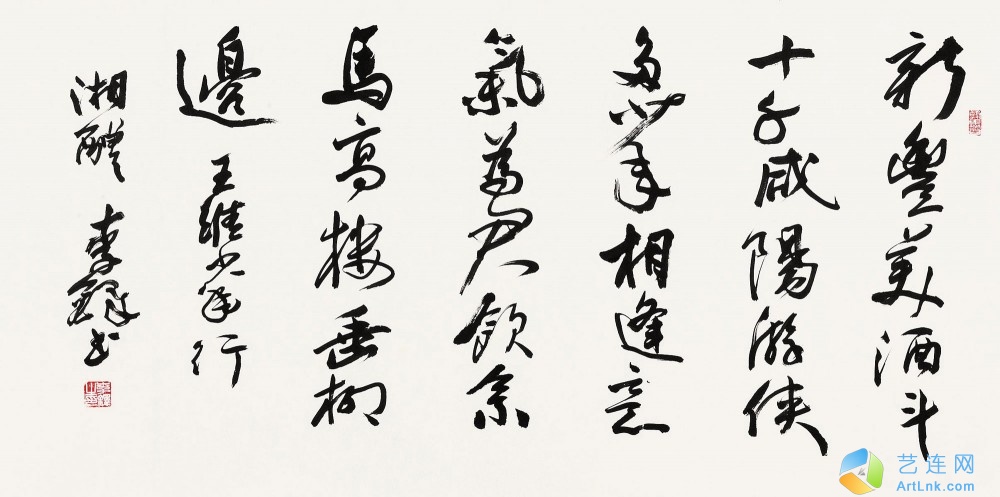 新豐美酒斗
十千咸陽游侠
多少年相逢意
氣為君飲系
馬高樓垂柳
邊 王維少年行
湘醴 李鐸书
艺连网
ArtLnk.com